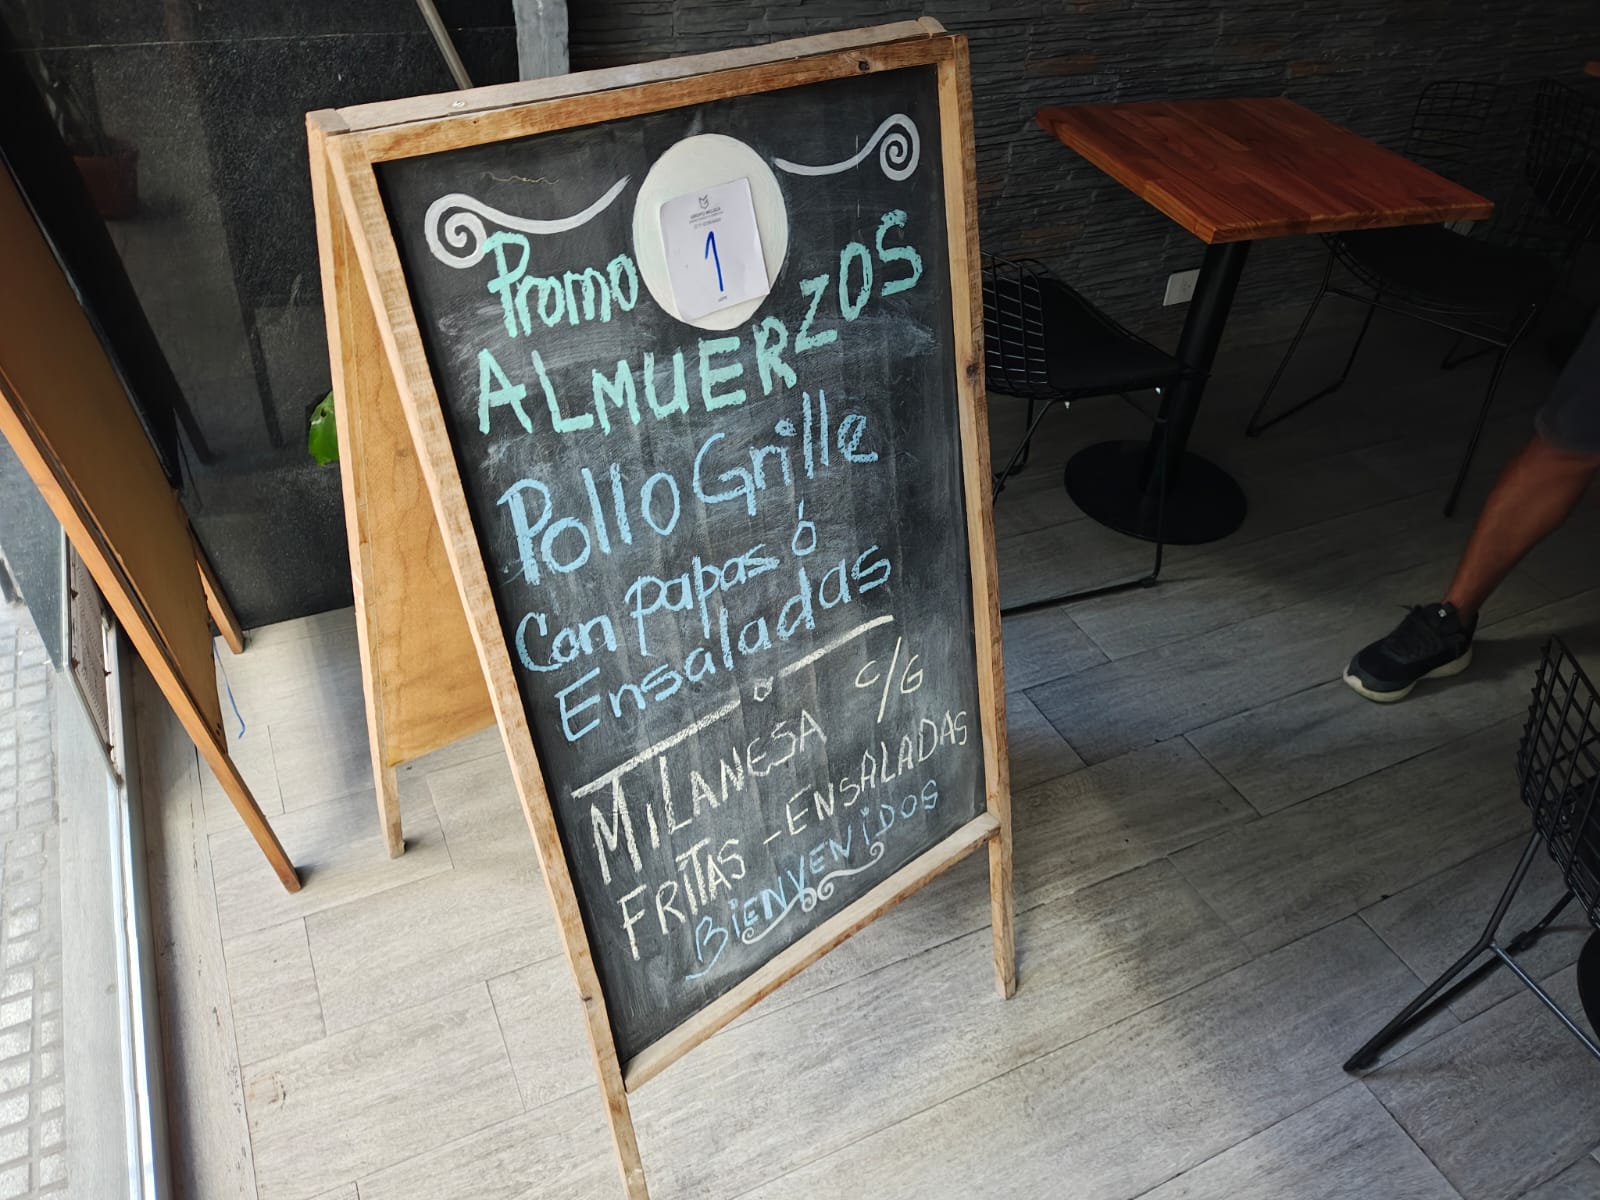 1
Promo
ALMUERZOS
Pollo Grille
Con papas ó
Ensaladas
o
MILANESA c/G
FRITAS - ENSALADAS
BiENVENiDOS